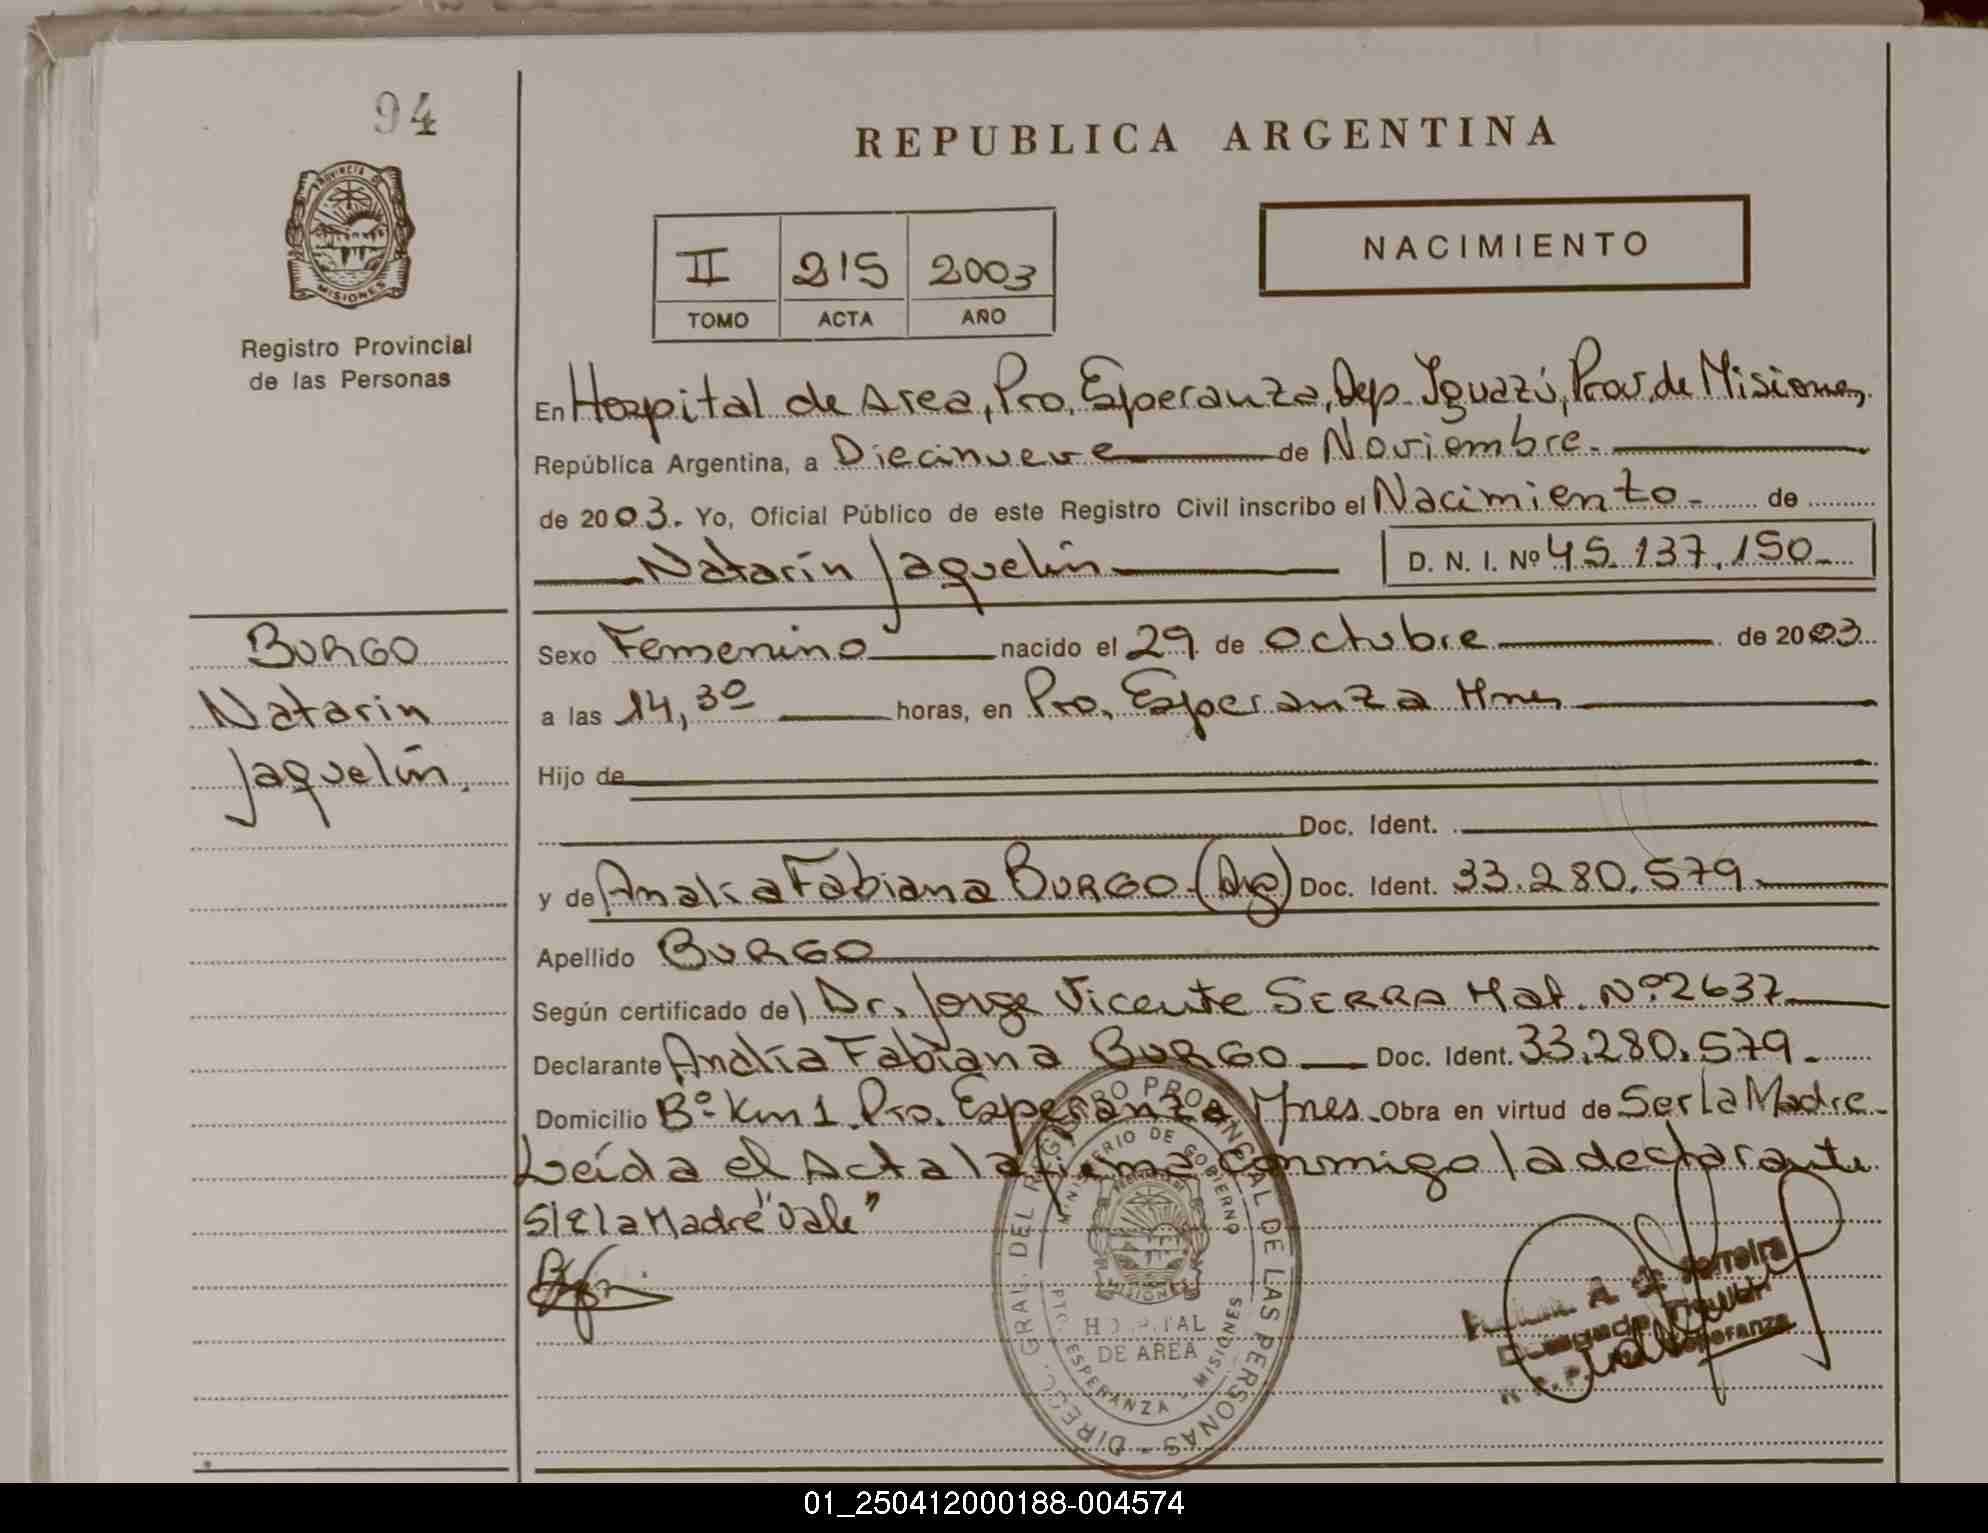 94
PROVINCIA DE
MISIONES
Registro Provincial
de las Personas
REPUBLICA ARGENTINA
II 215 2003
TOMO ACTA AÑO
NACIMIENTO
En Hospital de Area, Pto. Esperanza, Dep. Iguazú, Prov. de Misiones,
República Argentina, a Diecinueve de Noviembre.
de 2003. Yo, Oficial Público de este Registro Civil inscribo el Nacimiento - de
Natarin Jaquelin
D. N. I. Nº 45.137.150
BURGO
Natarin
Jaquelin.
Sexo Femenino nacido el 29 de Octubre de 2003
a las 14,30 horas, en Pto. Esperanza Mnes
Hijo de
Doc. Ident.
y de Analía Fabiana BURGO - (Arg) Doc. Ident. 33.280.579
Apellido BURGO
Según certificado del Dr. Jorge Vicente SERRA Mat. Nº 2637
Declarante Analía Fabiana BURGO Doc. Ident. 33.280.579.
Domicilio Bº Km 1. Pto. Esperanza Mnes. Obra en virtud de Ser la Madre
Leída el Acta la firma conmigo la declarante
S/R la Madre "Vale"
DIRECC. GRAL. DEL REGISTRO PROVINCIAL DE LAS PERSONAS
MINISTERIO DE GOBIERNO
MISIONES
HOSPITAL
DE AREA
PTO. ESPERANZA - MISIONES
A. Ferreira
Titular
Esperanza
01_250412000188-004574